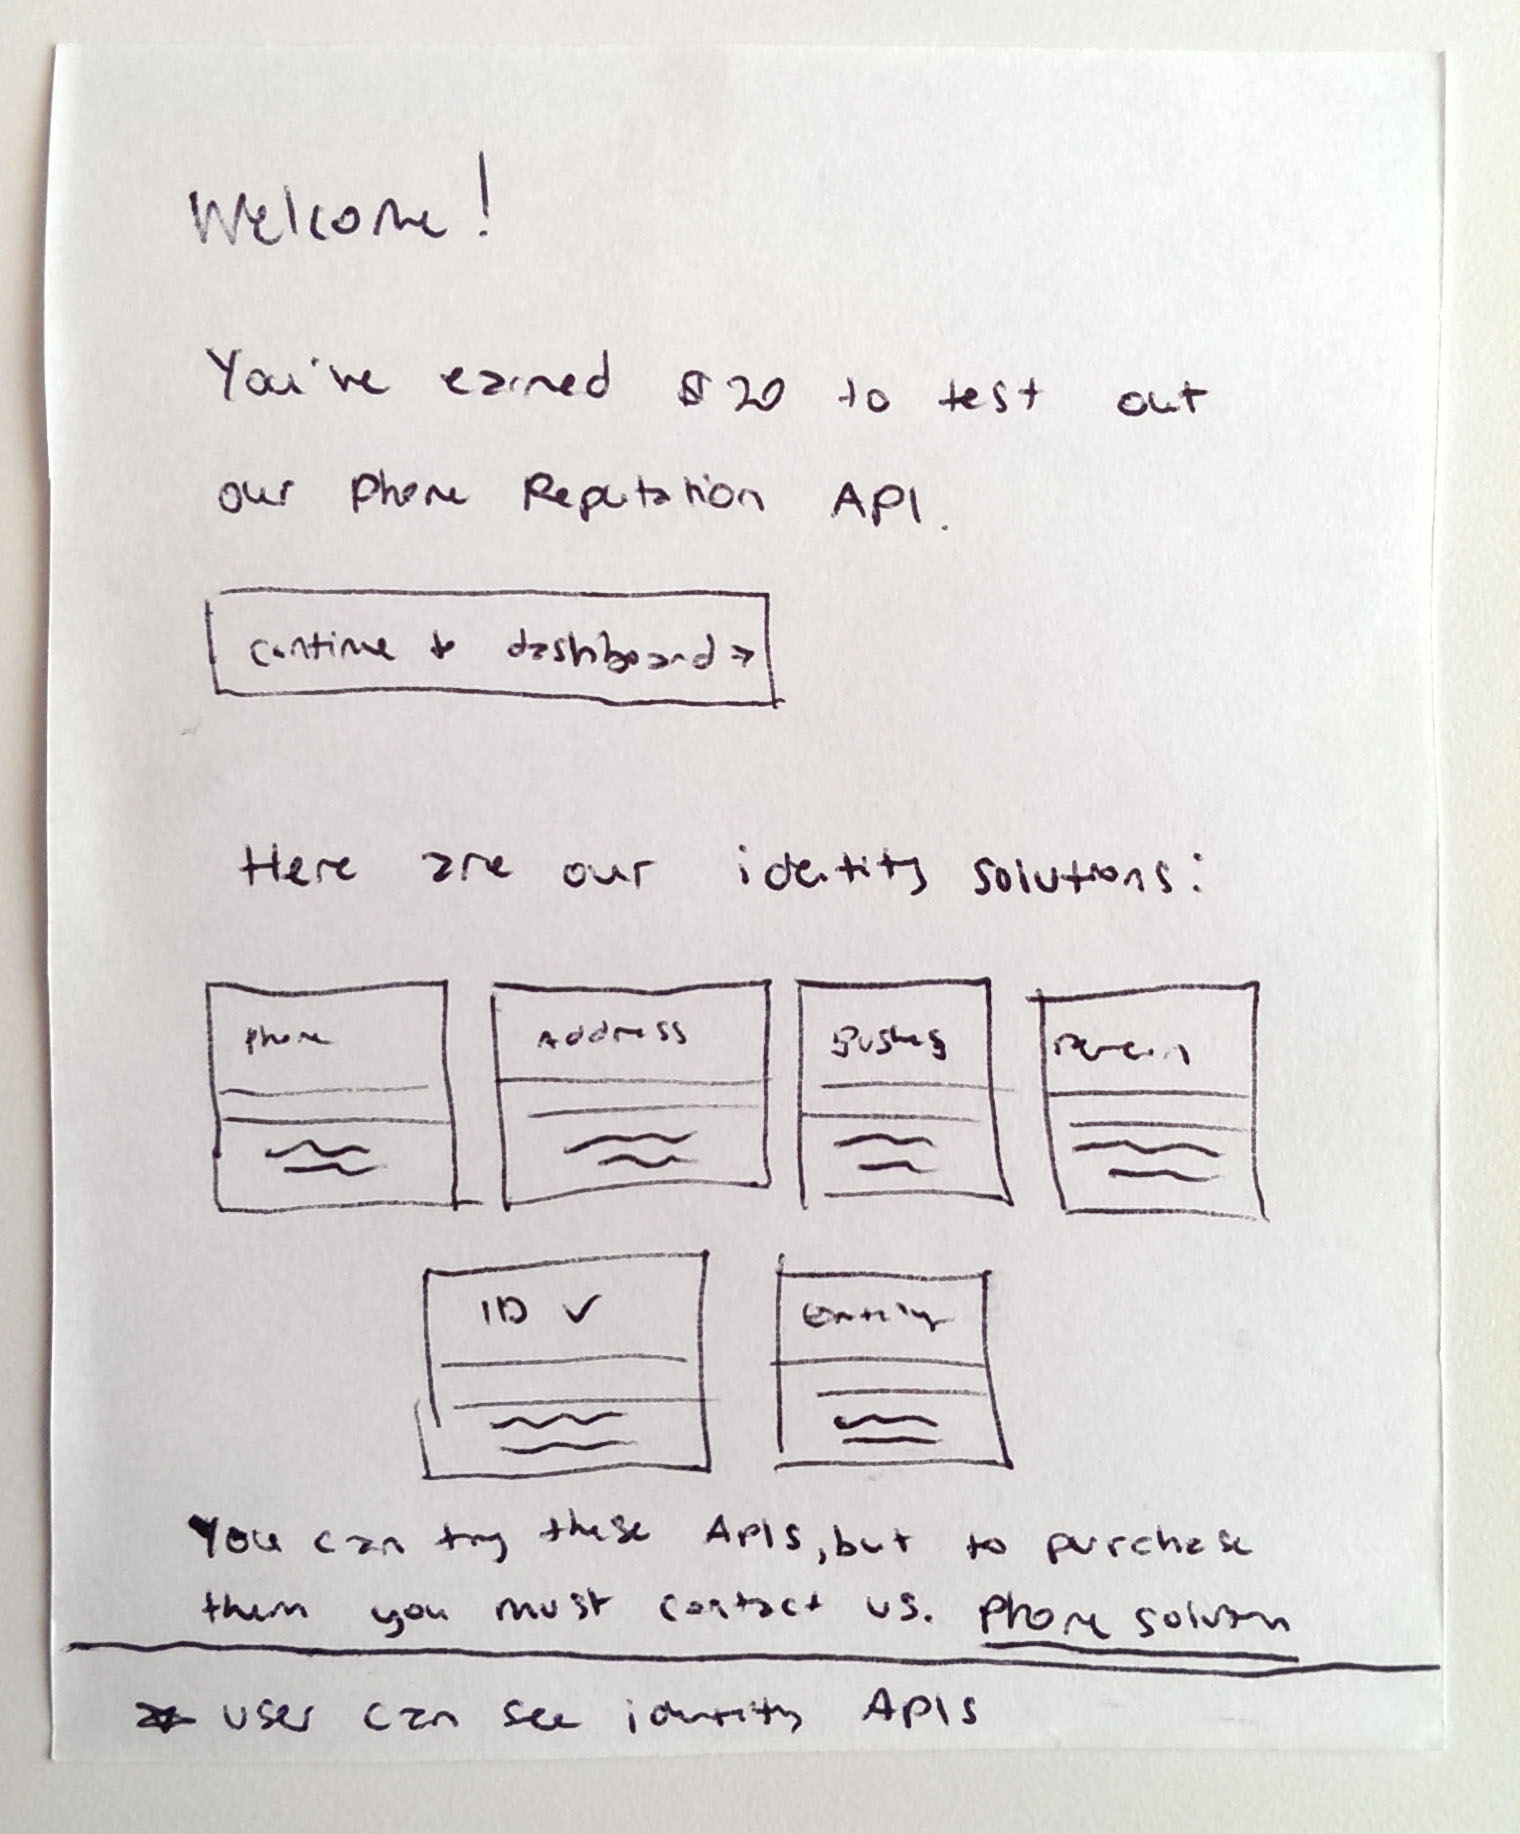 Welcome!
You've earned $20 to test out
our Phone Reputation API.
continue to dashboard →
Here are our identity solutions:
Phone
Address
Person
ID ✓
You can try these APIs, but to purchase
them you must contact us. Phone solution
* user can see identity APIs